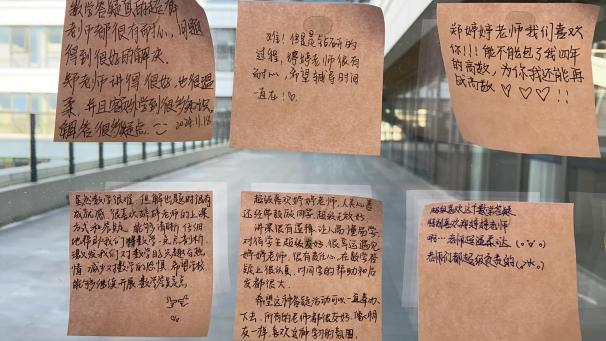 数学答疑真的超好
老师都很有耐心，问题
得到很好的解决.
老师讲得很好,也很温
柔,并且答疑学到很多
解答很多疑点. 2024.11.18
难！但是是钻研的
过程，婷婷老师很有
耐心，希望辅导时间
一直在！
郑婷婷老师我们喜欢
你!!!能不能包了我四年
的高数，为你我还能再
战高数 ♡♡♡!!
虽然数学很难，但解出题时很有
成就感，很喜欢婷婷老师的上课
方式和答疑，能够清晰仔细
地帮助我们
激发我们对数学的兴趣与热
情，减少对数学的恐惧，希望学校
能够继续开展数学答疑
超级喜欢婷婷老师,人美心善
还经常鼓励同学,超级无敌好.
讲课很有道理,让人高
对待学生超级好.很幸运遇见
婷婷老师,很有责任心,在数学答
疑上很认真,对同学的帮助和启
发都很大.
希望这种答疑活动可以一直举办
下去,所有的老师都很友好,像朋
友一样,喜欢这种学习的氛围.
超级喜欢这个数学答疑
特别喜欢郑婷婷老师
老师超温柔
老师们都超级负责的